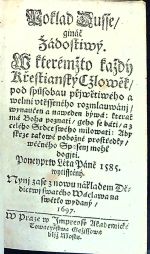 Poklad Dusse/
ginák
Žádostiwý.
W kterémžto každý
Křestianský Człowěk/
pod spůsobau přjwětiwého a
welmi vtěsseného rozmlauwánj/
wynaučen a naweden býwá: kterak
má Boha poznati/ geho se báti/ a z
celého Srdce swého milowati: Aby
skrze takowé pobožné prostředky/
wěčného Spasenj mohl
dogjti.
Poneyprw Léta Páně 1585.
wytisstěný.
Nynj zase z nowu nákladem Dě-
dicwj swatého Wácława na
swětlo wydaný/
1697.
W Praze w Jmpressí Akademické
Towaryšstwa Gežjssowa
bljž Mostu.